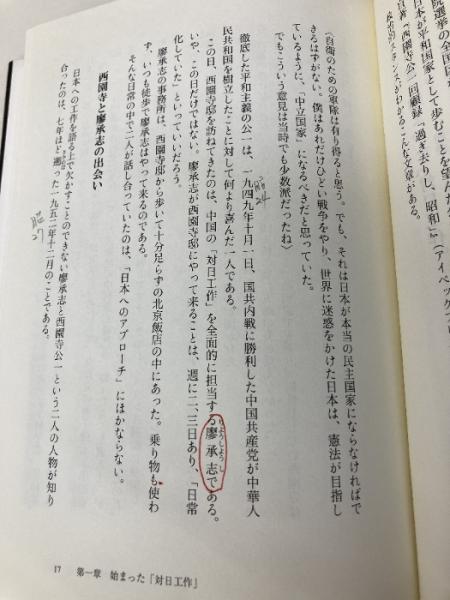 院選挙の
日本が平和国家として歩むことを望んだ
自著『西園寺公一回顧録「過ぎ去りし、昭和」』(アイペックプ
政治的スタンスがわかるこんな文章がある。
〈自衛のための軍隊は有り得ると思う。でも、それは日本が本当の民主国家にならなければで
きるはずがない。僕はあれだけひどい戦争をやり、世界に迷惑をかけた日本は、憲法が目指し
ているように、「中立国家」になるべきだと思っていた。
でもこういう意見は当時でも少数派だったね〉
徹底した平和主義の公一は、一九四九年十月一日、国共内戦に勝利した中国共産党が中華人
昭24
民共和国を樹立したことに対して何より喜んだ一人である。
この日、西園寺邸を訪ねてきたのは、中国の「対日工作」を全面的に担当する廖承志である。
りょうしょうし
いや、この日だけではない。廖承志が西園寺邸にやって来ることは、週に二、三日あり、「日常
化していた」といっていいだろう。
廖承志の事務所は、西園寺邸から歩いて十分足らずの北京飯店の中にあった。乗り物も使わ
ず、いつも徒歩で廖承志はやって来るのである。
そんな日常の中で二人が話し合っていたのは、「日本へのアプローチ」にほかならない。
西園寺と廖承志の出会い
日本への工作を語る上で欠かすことのできない廖承志と西園寺公一という二人の人物が知り
合ったのは、七年ほど遡った一九五二年十二月のことである。
さかのぼ
昭27
17 第一章 始まった「対日工作」